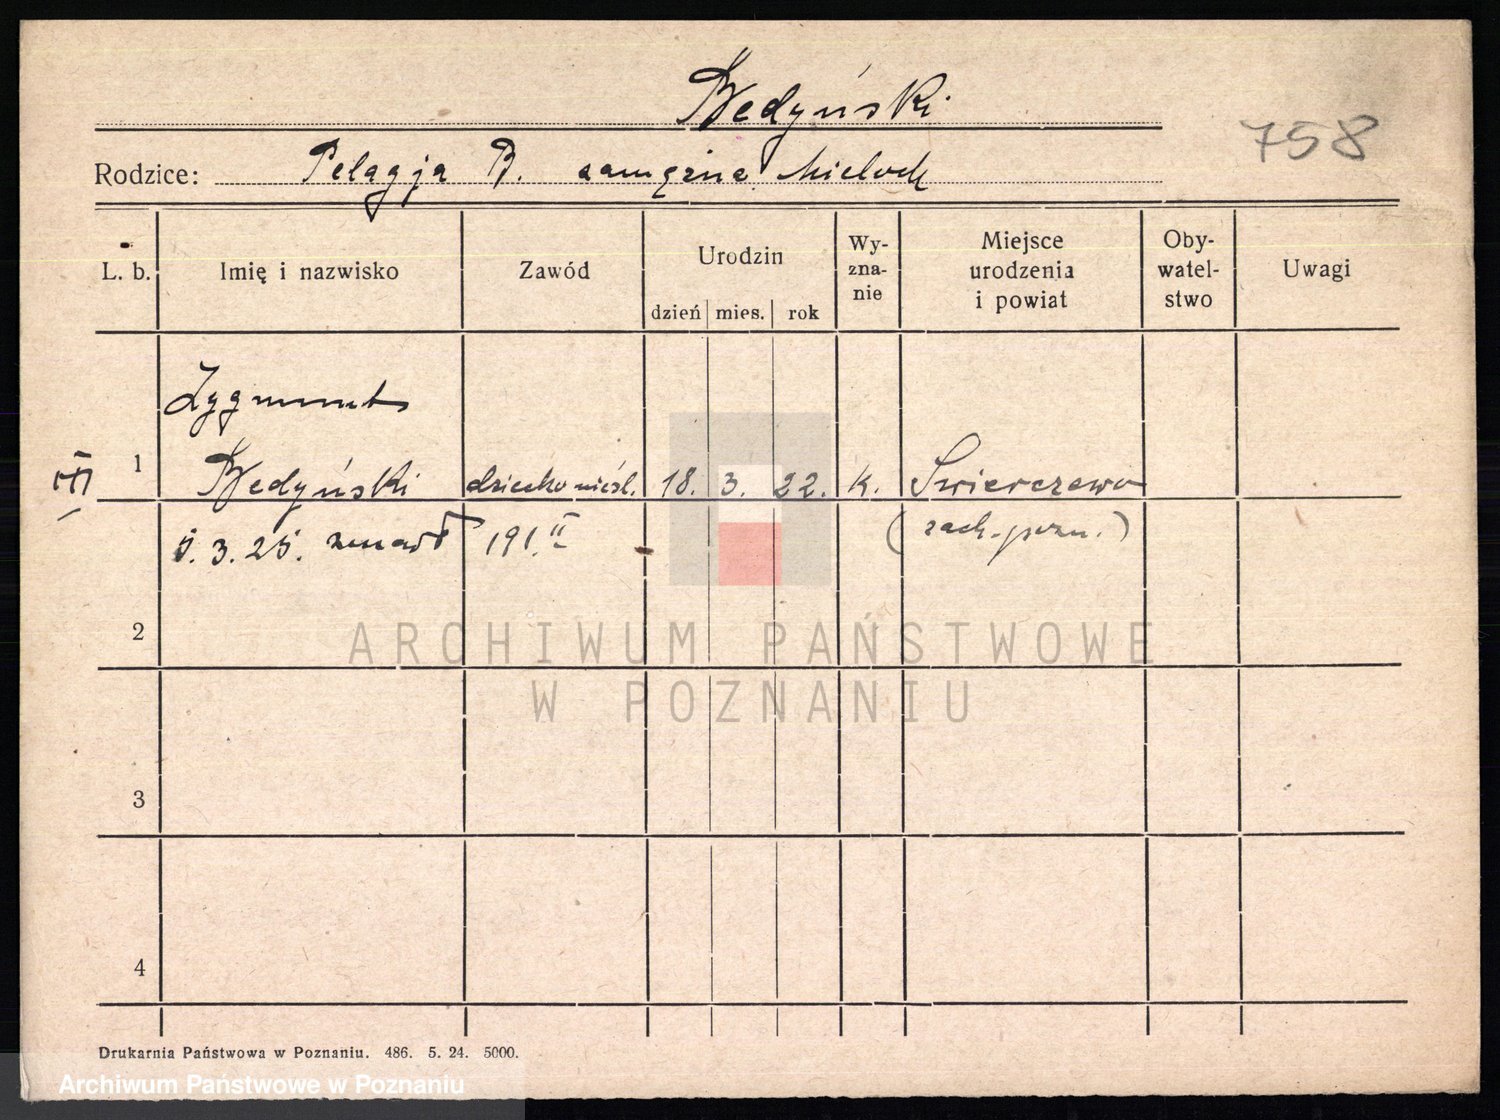 Bedyński
758
Rodzice: Pelagja B. zamężna Mieloch
L. b. Imię i nazwisko Zawód Urodzin dzień mies. rok Wy-zna-nie Miejsce urodzenia i powiat Oby-watel-stwo Uwagi
Zygmunt
1 Bedyński dziecko nieśl. 18. 3. 22. k. Świerczewo
5. 3. 25. zmarł 191.II (zach.-pozn.)
2
ARCHIWUM PAŃSTWOWE
W POZNANIU
3
4
Drukarnia Państwowa w Poznaniu. 486. 5. 24. 5000.
Archiwum Państwowe w Poznaniu